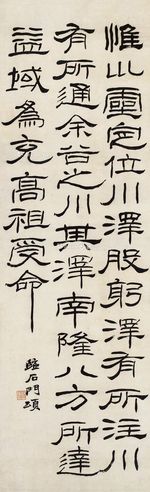 惟巛靈定位川澤股躬澤有所注川
有所通余谷之川其澤南隆八方所達
益域為充高祖受命
臨石門頌